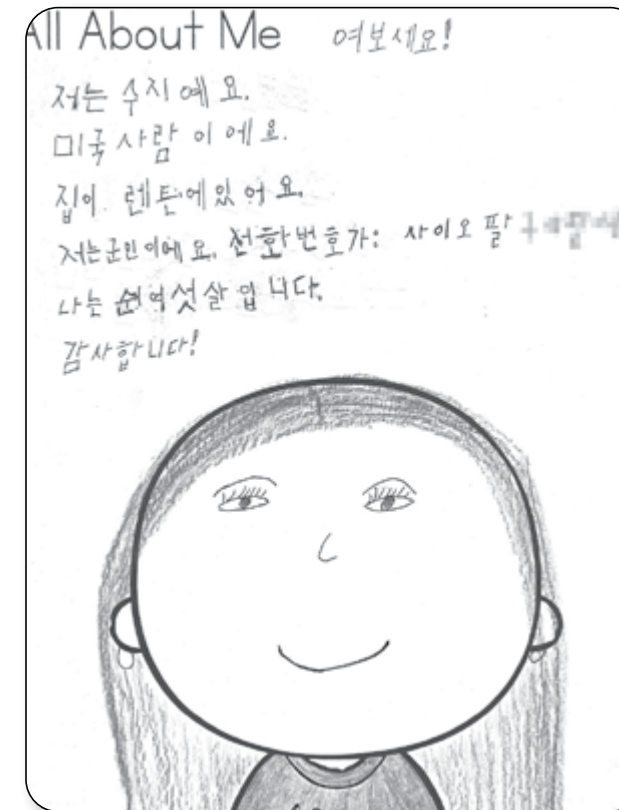 All About Me 여보세요!
저는 수지 예요.
미국 사람 이 에요.
집이 렌튼에있 어 요.
저는군인이에 요. 전화번호가: 사이오 팔
나는 쉰여섯살 입 니다.
감사합니다!